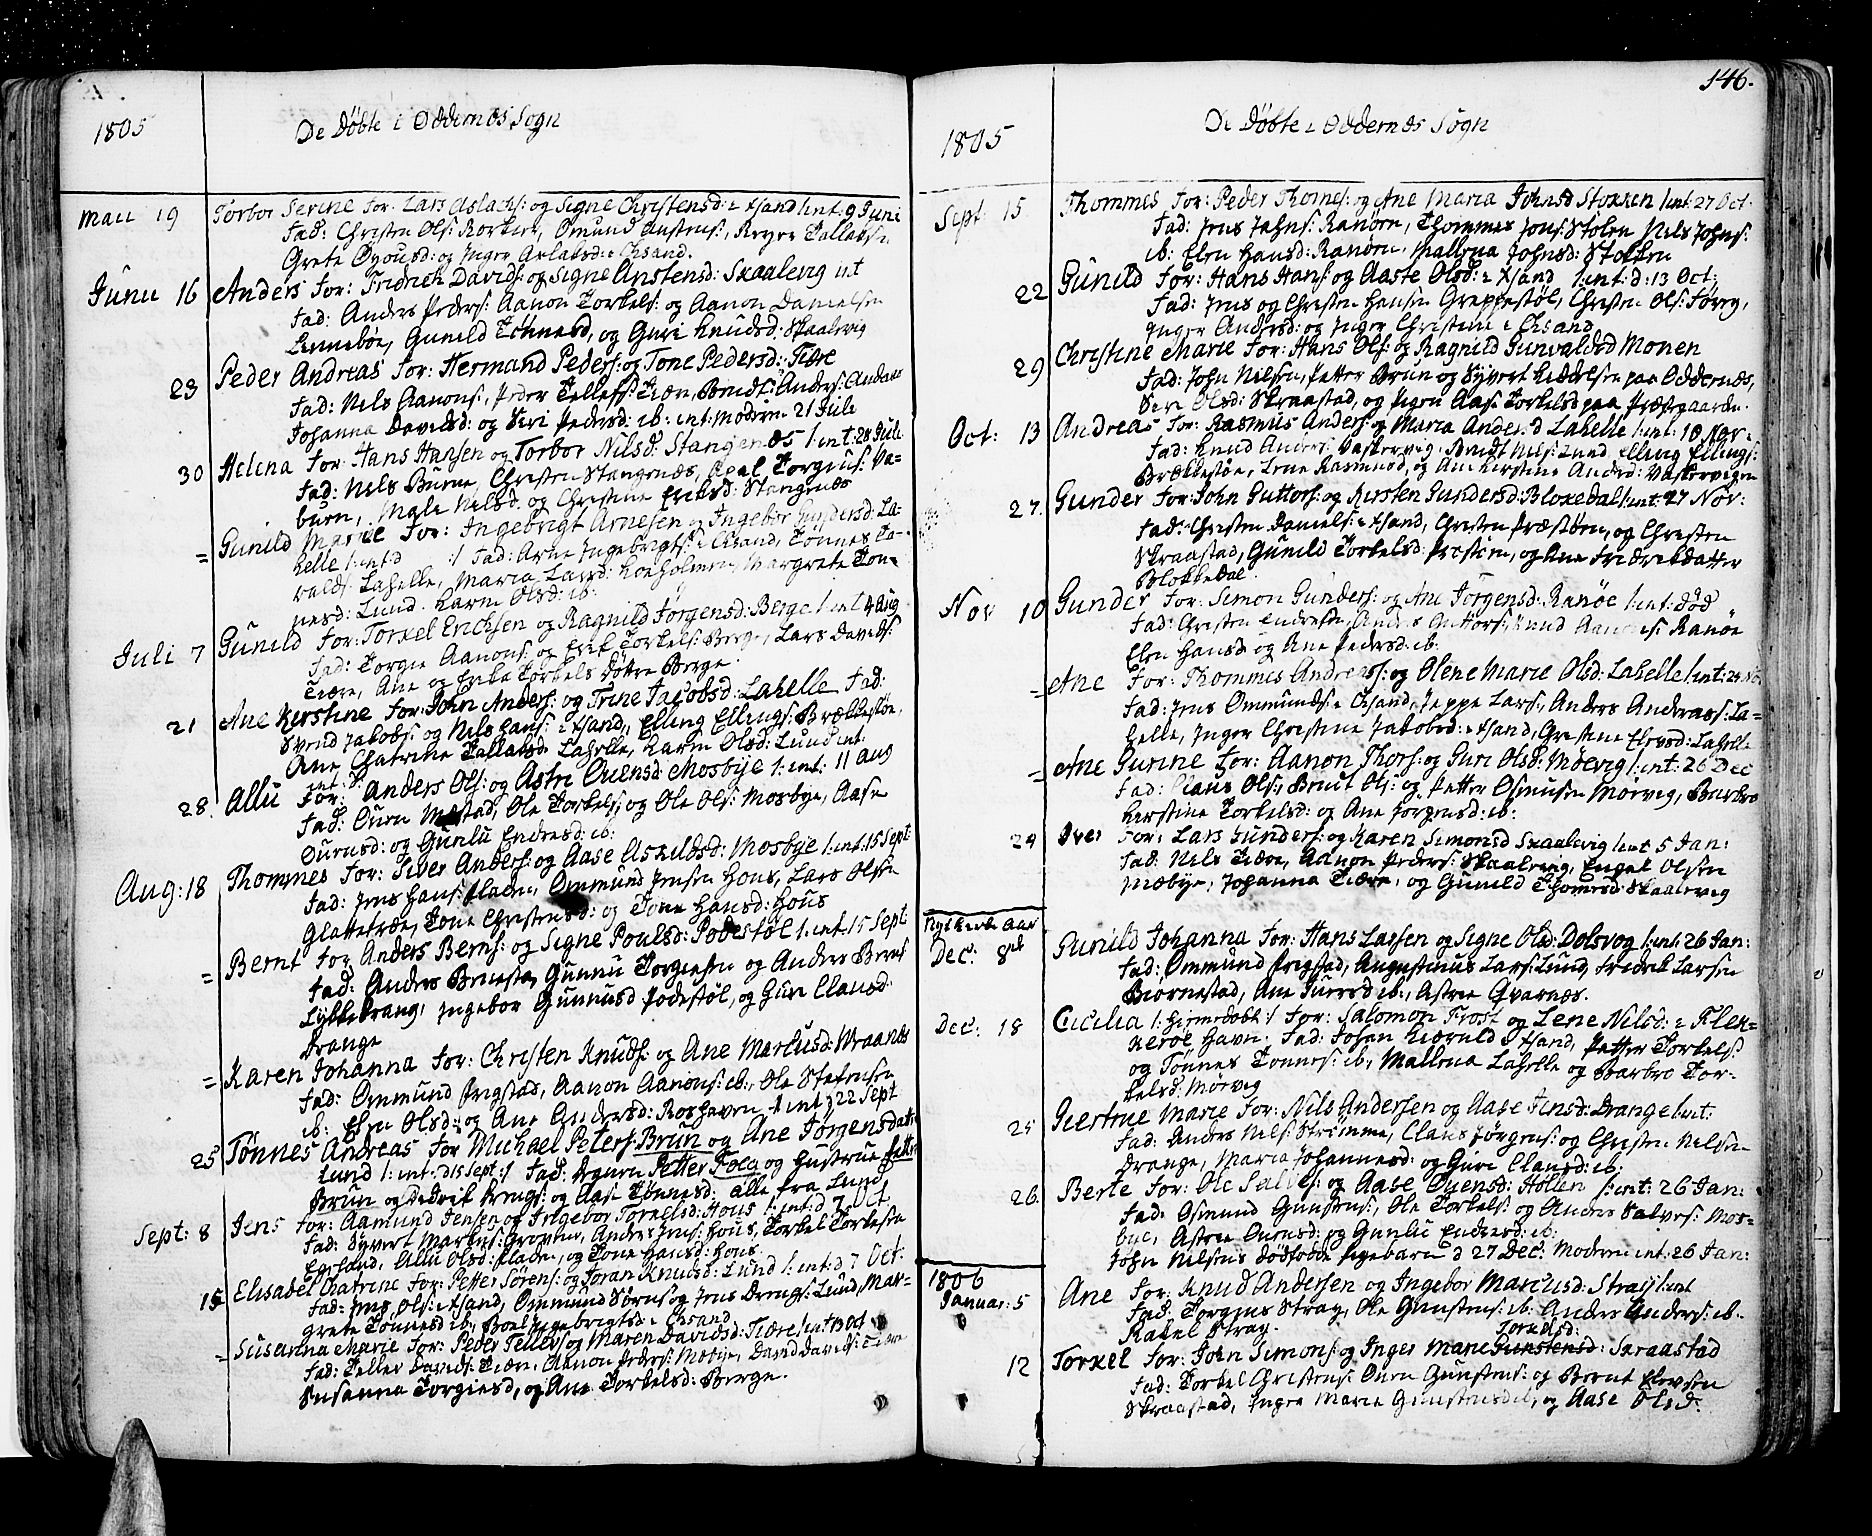 1805 De Døbte i Oddernes Sogn
Maii 19 Torbor Serine For: Lars Aslachs: og Signe Christensd: i Xsand int. 9 Juni
Fad: Christen Ols: Omund Anstens:, Reyer Tallaksen
Grete Øvensd: og Inger Aslaksd: i Chsand.
Junii 16 Anders For: Fridrich Davids: og Signe Anstensd: Skaalevig int
Fad: Anders Peders: Aanon Torkels: og Aanon Danielsen
Gunild Tønnesd, og Guri Knudsd: Skaalevig
23 Peder Andreas For: Hermand Peders: og Tone Pedersd: Tiære
Fad: Nels Aanons:, Peder Tellefs: Tiære, Berndt Anders: Andaas
Johanna Davidsd: og Siri Pedersd: ib: int: Moderen 21 Julii
30 Helena For: Hans Hansen og Torbor Nilsd: Stangenes /: int: 28 Julii
Fad: Nels Buene, Christen Stangenæs, Torgius: Va-
buen, Male Nelsd. og Christine Eriksd: Stangenæs
= Gunild Marie For: Ingebrigt Arnesen og Ingebor Gundersd: La-
helle /: int: d :/ Fad: Arne Ingebrigts: i Chsand, Tønnes To-
valds: Lahelle, Maria Larsd: Margrete Tøn-
nesd: Lund. Karen Olsd: ib:
Juli 7 Gunild For: Torkel Erichsen og Ragnild Jørgensd: Berge /: int 4 Aug
Fad: Torgie Aanons: og Erik Torkels: Berge, Lars Davids:
Tiære, Ane og Erike Torkels Døttre Berge.
21 Ane Kirstine For: John Anders: og Trine Jacobsd: Lahelle Fad:
Svend Jakobs: og Nils Hans: i Xsand, Elling Ellings: Brækkestøe,
Ane Chatrine Tallaksd: Lahelle, Karen Olsd: Lund int:
28. Allu For: Anders Ols: og Astri Ovensd: Mosbye /: int: 11 Aug
Fad: Ouen Ole Torkels: og Ole Ols: Mosbye, Aase
Ouensd: og Gunlu Endresd: ib:
Aug: 18 Thommes For: Siver Anders: og Aase Askildsd: Mosbye /: int: 15 Sept:
Fad: Jens Hans: Fladen, Ommund Jensen Hous, Lars Olsen
Glattetræe, Tone Christensd: og Tone Hansd: Hous
= Bernt For Anders Berns: og Signe Poulsd: Podestøl /: int. 15 Sept:
Fad: Anders Gunnu Torgiesen og Anders Bernt
Lykkedrang, Ingebor Gunnusd Podestøl, og Guri Clausd:
Drange
= Karen Johanna For: Christen Knuds: og Ane Marcusd: Vraanæs
Fad: Ommund Prigstad, Aanon Aanons: ib:, Ole Stefensen
ib: Elen Olsd: og Ane Andersd: Roshaven /: int d 22 Sept
25 Tønnes Andreas For Michael Peters: Brun og Ane Jørgensdatter
Lund /: int: d 15 Sept :/ Fad: Petter Foeg og Hustrue
Brun og Drengs: og Aase Tønnesd: alle fra Lund
Sept: 8 Jens For: Aamund Jensen og Ingebor Torkelsd: Hous /: int: d 7 Oct
Fad: Syvert Markus: Grovene, Anders Jens: Hous, Torkel Torkelsen
Egeland, Allu Olsd: Fladen, og Tone Hansd: Hous.
15 Elisabel Chatrine For: Petter Sørens: og Joran Knudsd: Lund /: int: d 7 Oct:
Fad: Jens Ols: i Xsand, Ommund Sørens: og Jens Drengs: Lund, Mar-
grete Tønnesd ib:, Boel Ingebrigtsd: i Chsand
= Susanna Marie For: Peder Tellevs: og Maren Davidsd: Tiære /: int 13 Oct
Fad: Tellev Davids: Tiære, Aanon Peders: Mebye, David Davids: Tiære
Susanna Torgiesd, og Ane Torkelsd: Berge.
146.
1805 De Døbte i Oddernes Sogn
Sept: 15 Thommes For: Peder Thomes: og Ane Maria Johnsd Stokken /: int: 27 Oct:
Fad: Jens Jahns: Ranøen, Thommes Jens: Stølen Nels Johns:
ib: Elen Hansd: Ranøen, Mallena Johnsd: Stokken
22 Gunild For: Hans Hans: og Aaste Olsd: i Xsand /: int: d: 13 Oct:
Fad: Jens og Christen Hansen Greppestøl, Christen Ols:
Inger Andersd: og Inger Christine i Chsand
29 Christine Marie For: Hans Ols: og Ragnild Gunvaldsd Monen
Fad: John Nilsen, Petter Brun og Syvert Kieddelsen paa Oddernæs,
Siri Olsd: Skraastad, og Pigen Aase Torkelsd paa Præstgaarden.
Oct: 13 Andreas For: Rasmus Anders: og Maria Andersd Lahelle /: int: 10 Nov:
Fad: Knud Anders: Vaskervig, Berndt Nels: Lund, Elling Ellings:
Brækkestøe, Lene Rasmusd, og Ane Kirstine Andersd: Vaskervigen
27. Gunder For: John Guttors: og Kirsten Gundersd: Bloxedal /: int: 27 Nov:
Fad: Christen Daniels: i Xsand, Christen Præstøren, og Christen
Skraastad, Gunild Torkelsd og Ane Fredriksdatter
Blokkedal.
Nov 10 Gunder For: Simon Gunders: og Ane Jørgensd: Ranøe /: int: død
Fad: Christen Endresen, Anders Guttors: Knud Aanons: Ranøe
Elen Hansd: og Ane Pedersd: ib:
= Ane For: Thommes Andreass: og Olene Marie Olsd: Lahelle /: int: 24 No
Fad: Jens Ommunds: i Chsand, Jeppe Lars:, Anders Andreass: La-
helle, Inger Christine Jakobsd: i Xsand, Christine Elevsd: Lahelle
= Ane Gurine For: Aanon Thors: og Guri Olsd: Møevig /: int: 26 Dec
Fad: Claus Ols:, Berut Ols: og Petter Osmunsen Mørvig, Barbro
Kirstine Torkelsd: og Ane Jørgensd: ib:
24 Iver For: Lars Gunders: og Karen Simonsd Skaalevig /: int 5 Jan:
Fad: Nels Tiære, Aanon Peders: Skaalevig, Engel Olsen
Mæbye, Johanna Tiære, og Gunild Thomesd: Skaalevig
Nyt Kirke Aar
Dec: 8de Gunild Johanna For: Hans Larsen og Signe Olsd: Dolsvog /: int: 26 Jan:
Fad: Ommund Prigstad, Augustinus Lars: Lund, Fredrik Larsen
Biørnestad, Ane Iversd ib:, Astree Qvarnæs.
Dec: 18 Cicilia /: hiemmedøbt :/ For: Salomon Frost og Lene Nilsd: i Flek-
kerøe Havn. Fad: Johan Kiørulf i Xsand, Petter Torkels:
og Tønnes Tønnes: ib:, Mallena Lahelle og Barbro Tor-
kelsd: Mørvig
25 Giertrue Marie For: Nils Andersen og Aase Jensd: Drange /: int:
Fad: Anders Nels: Strømme, Claus Jørgens: og Christen Nelsen
Drange, Maria Johannesd: og Guri Clausd: ib:
26. Berte For: Ole Salves: og Aase Øyensd: Holien /: int: 26 Jan:
Fad: Osmund Gunstens:, Ole Torkels: og Anders Salves: Mos-
bye, Astree Ouensd: og Gunlu Endersd: ib:
John Nilsens dødfødde Pigebarn d 27 Dec: Moderen int: 26 Jan:
1806
Januar: 5 Ane For: Knud Andersen og Ingebor Marcusd: Stray /: int
Fad: Torgius Stray, Ole Gunstens: ib: Anders Anders: ib.
Rakel Stray.
Torkelsd:
12 Torkel For: John Simons: og Inger Marie Gunstensd: Skraastad
Fad: Torkel Christens: Ouen Gunstens: og Bernt Elevsen
Skraastad, Inger Maria Gunstensd ib, og Aase Olsd: